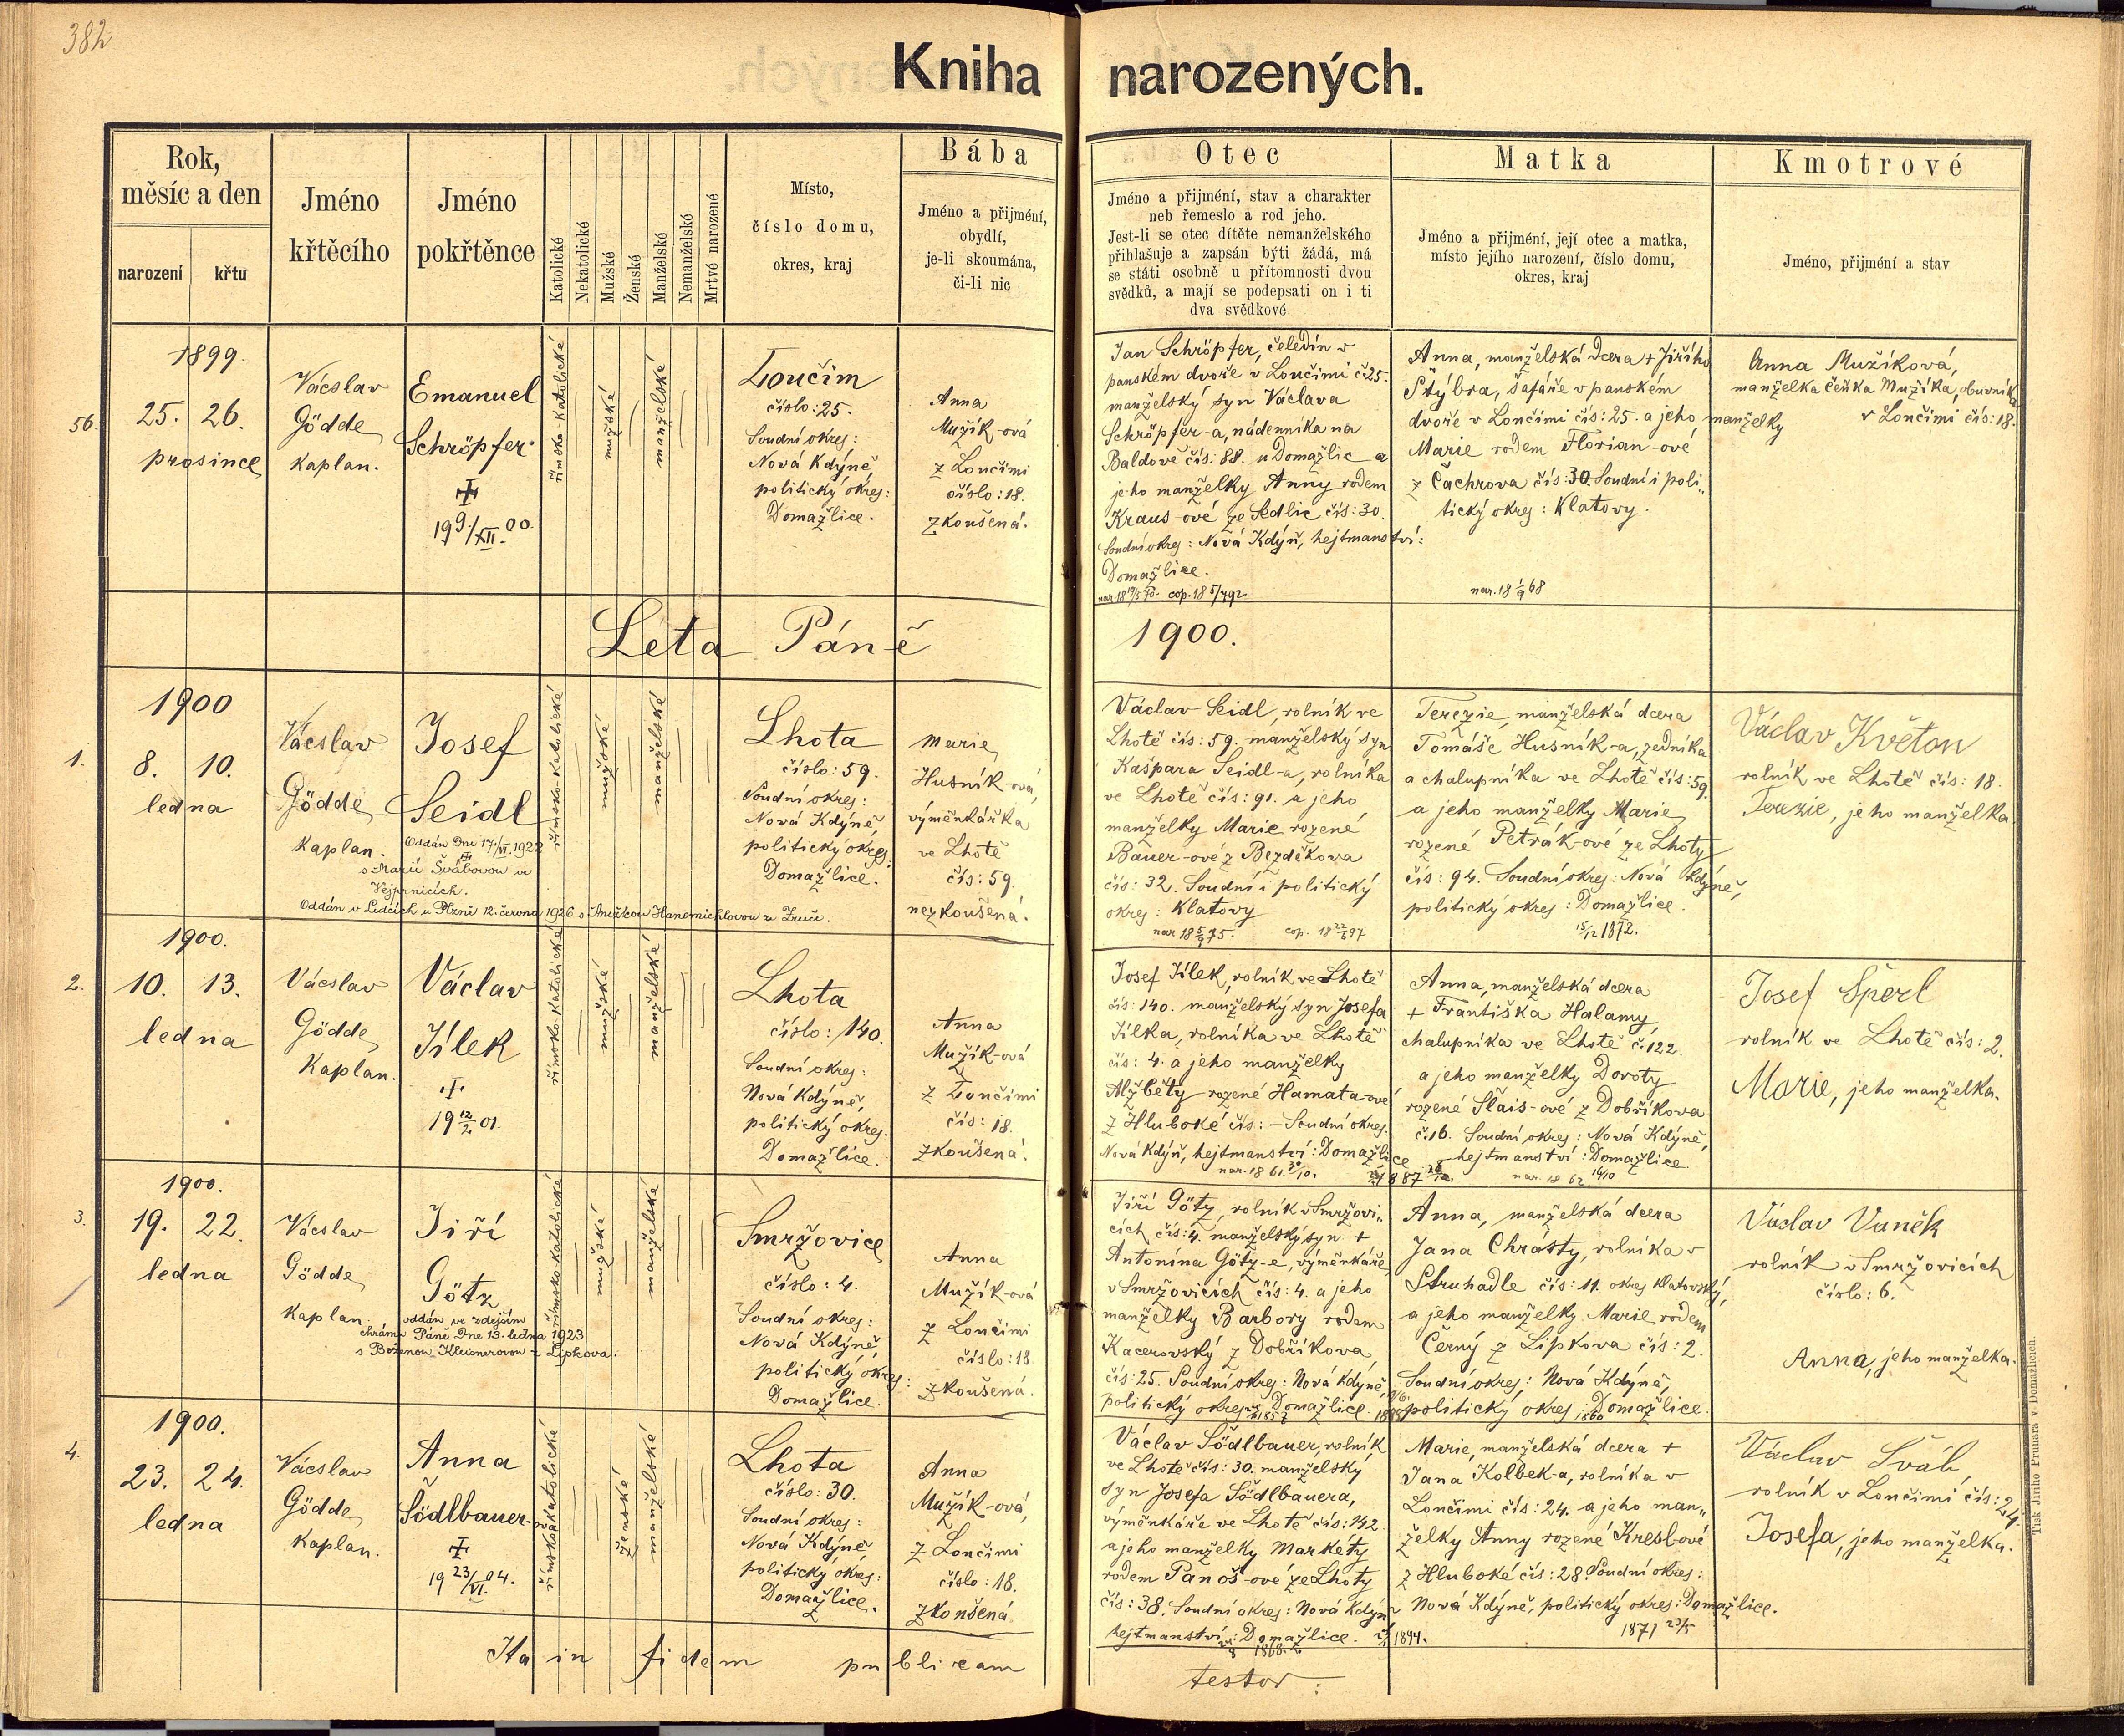 382
Kniha narozených.
Rok,
měsíc a den
narození
křtu
Jméno
křtěcího
Jméno
pokřtěnce
Katolické
Nekatolické
Mužské
Ženské
Manželské
Nemanželské
Mrtvé narozené
Místo,
číslo domu,
okres, kraj
Bába
Jméno a příjmení,
obydlí,
je-li skoumána,
či-li nic
Otec
Jméno a přijmení, stav a charakter
neb řemeslo a rod jeho.
Jest-li se otec dítěte nemanželského
přihlašuje a zapsán býti žádá, má
se státi osobně u přítomnosti dvou
svědků, a mají se podepsati on i ti
dva svědkové
Matka
Jméno a přijmení, její otec a matka,
místo jejího narození, číslo domu,
okres, kraj
Kmotrové
Jméno, přijmení a stav
56.
1899.
25. 26.
prosince
Václav
Gödde,
kaplan.
Emanuel
Schröpfer
19 9/XII. 00.
římsko-katolické
mužské
manželské
Loučim
číslo: 25.
Soudní okres:
Nová Kdýně,
politický okres:
Domažlice.
Anna
Mužík-ová
z Loučimi
číslo: 18.
zkoušená.
Jan Schröpfer, čeledín v
panském dvoře v Loučimi č. 25.
manželský syn Václava
Schröpfer-a, nádenníka na
Baldově čís: 88. u Domažlic a
jeho manželky Anny rodem
Kraus-ové ze Sedlic čís: 30.
Soudní okres: Nová Kdýň, hejtmanství:
Domažlice.
cop. 18 5/7 92
Anna, manželská dcera + Jiřího
Štýbra, šafáře v panském
dvoře v Loučimi čís: 25. a jeho manželky
Marie rodem Florian-ové
z Čachrova čís: 30. Soudní i poli„
tický okres: Klatovy.
nar. 18 1/9 68
Anna Mužíková,
manželka Čeňka Mužíka, obuvníka
v Loučimi čís: 18.
Léta Páně 1900.
1.
1900
8. 10.
ledna
Václav
Gödde,
kaplan.
Josef
Seidl
Oddán dne 17/VI. 1922
s Marií Švábovou ve
Vejprnicích.
Oddán v Ledcích u Plzně 12. června 1926 s Anežkou Hanomichlovou ze Zruče.
římsko-katolické
mužské
manželské
Lhota
číslo: 59.
Soudní okres:
Nová Kdýně,
politický okres:
Domažlice.
Marie
Husník-ová,
výměnkářka
ve Lhotě
čís: 59.
nezkoušená.
Václav Seidl, rolník ve
Lhotě čís: 59. manželský syn
Kašpara Seidl-a, rolníka
ve Lhotě čís: 91. a jeho
manželky Marie rozené
Bauer-ové z Bezděkova
čís: 32. Soudní i politický
okres: Klatovy
nar 18 5/9 75. cop. 18 22/6 97
Terezie, manželská dcera
Tomáše Husník-a, zedníka
a chalupníka ve Lhotě čís: 59.
a jeho manželky Marie
rozené Petrák-ové ze Lhoty
čís: 94. Soudní okres: Nová Kdýně,
politický okres: Domažlice.
15/12 1872.
Václav Květon
rolník ve Lhotě čís: 18.
Terezie, jeho manželka.
2.
1900.
10. 13.
ledna
Václav
Gödde,
kaplan.
Václav
Jílek
19 12/2 01.
římsko-katolické
mužské
manželské
Lhota
číslo: 140.
Soudní okres:
Nová Kdýně,
politický okres:
Domažlice.
Anna
Mužík-ová
z Loučimi
čís: 18.
zkoušená.
Josef Jílek, rolník ve Lhotě
čís: 140. manželský syn Josefa
Jílka, rolníka ve Lhotě
čís: 4. a jeho manželky
Alžběty rozené Hamata-ové
z Hluboké čís: – Soudní okres:
Nová Kdýň, hejtmanství: Domažlice
nar. 1861. 30/10.
Anna, manželská dcera
+ Františka Halamy,
chalupníka ve Lhotě č. 122
a jeho manželky Doroty
rozené Šlais-ové z Dobříkova
č. 16. Soudní okres: Nová Kdýně,
hejtmanství: Domažlice
nar. 1862 16/10
Josef Šperl
rolník ve Lhotě čís: 2.
Marie, jeho manželka.
3.
1900.
19. 22.
ledna
Václav
Gödde,
kaplan.
Jiří
Götz
oddán ve zdejším
chrámu Páně dne 13. ledna 1923
s Boženou Kleisnerovou z Lipkova.
římsko-katolické
mužské
manželské
Smržovice
číslo: 4.
Soudní okres:
Nová Kdýně,
politický okres:
Domažlice.
Anna
Mužík-ová
z Loučimi
číslo: 18
zkoušená.
Jiří Götz, rolník v Smržovi„
cích čís: 4. manželský syn +
Antonína Götz-e, výměnkáře
v Smržovicích čís: 4. a jeho
manželky Barbory rodem
Kacerovský z Dobříkova
čís: 25. Soudní okres: Nová Kdýně,
politický okres: Domažlice.
Anna, manželská dcera
Jana Chrásty, rolníka v
Struhadle čís: 11. okres Klatovský,
a jeho manželky Marie rodem
Černý z Lipkova čís: 2.
Soudní okres: Nová Kdýně,
politický okres: Domažlice.
1860
Václav Vaněk
rolník v Smržovicích
číslo: 6.
Anna, jeho manželka.
4.
1900.
23. 24.
ledna
Václav
Gödde,
kaplan.
Anna
Södlbauer-ová
19 23/VI. 04.
římsko-katolické
ženské
manželské
Lhota
číslo: 30.
Soudní okres:
Nová Kdýně
politický okres:
Domažlice.
Anna
Mužík-ová,
z Loučimi
číslo: 18.
zkoušená
Václav Södlbauer, rolník
ve Lhotě čís: 30. manželský
syn Josefa Södlbauera,
výměnkáře ve Lhotě čís: 142
a jeho manželky Markéty
rodem Panoš-ové ze Lhoty
čís: 38. Soudní okres: Nová Kdýně
hejtmanství: Domažlice.
1894.
Marie, manželská dcera +
Jana Kolbek-a, rolníka v
Loučimi čís: 24. a jeho man„
želky Anny rozené Kreslové
z Hluboké čís: 28. Soudní okres:
Nová Kdýně, politický okres: Domažlice.
1871 23/5
Václav Šváb,
rolník v Loučimi čís: 24.
Josefa, jeho manželka.
Ita in fidem publicam testor:
Tisk Jiřího Prunara v Domažlicích.